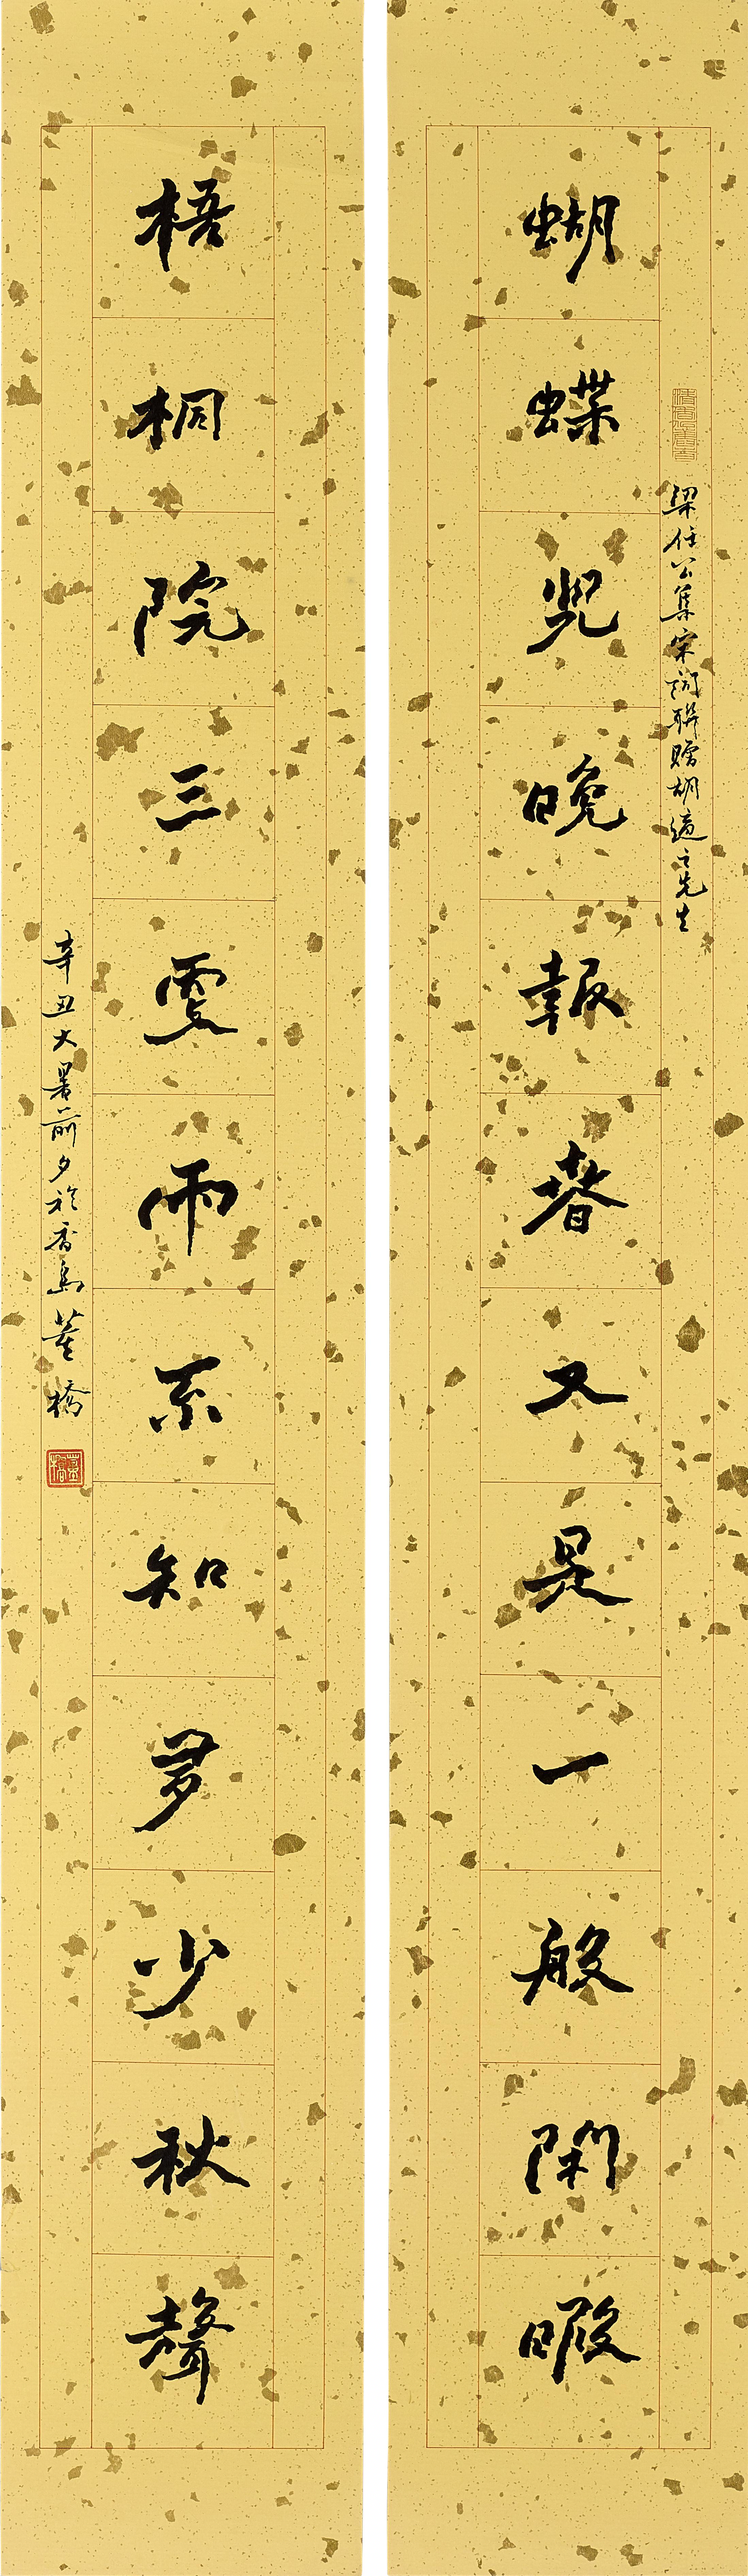 梁任公集宋詞聯贈胡適之先生
蝴蝶兒晚報春又是一般閒暇
梧桐院三更雨不知多少秋聲
辛丑大暑前夕於香島 董橋
董橋